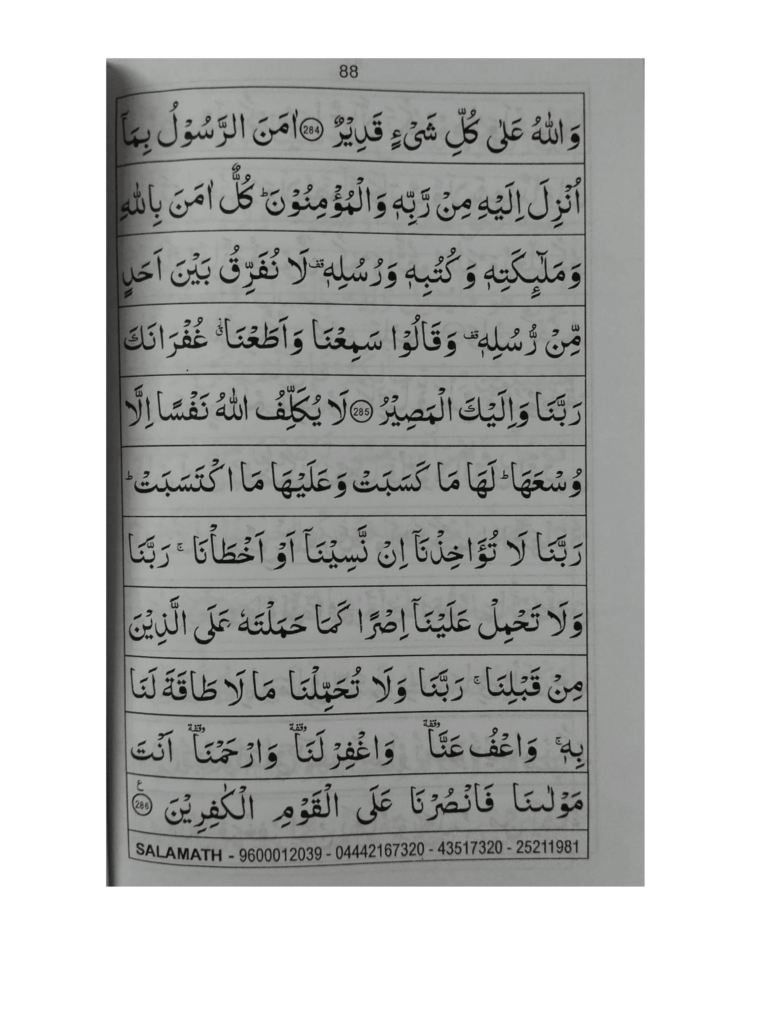 88
وَاللّٰهُ عَلٰى كُلِّ شَىْءٍ قَدِيْرٌ ﴿284﴾ اٰمَنَ الرَّسُوْلُ بِمَاۤ
اُنْزِلَ اِلَيْهِ مِنْ رَّبِّهٖ وَالْمُؤْمِنُوْنَ ؕ كُلٌّ اٰمَنَ بِاللّٰهِ
وَمَلٰٓئِكَتِهٖ وَكُتُبِهٖ وَرُسُلِهٖ قف لَا نُفَرِّقُ بَيْنَ اَحَدٍ
مِّنْ رُّسُلِهٖ قف وَقَالُوْا سَمِعْنَا وَاَطَعْنَا غُفْرَانَكَ
رَبَّنَا وَاِلَيْكَ الْمَصِيْرُ ﴿285﴾ لَا يُكَلِّفُ اللّٰهُ نَفْسًا اِلَّا
وُسْعَهَا ؕ لَهَا مَا كَسَبَتْ وَعَلَيْهَا مَا اكْتَسَبَتْ ؕ
رَبَّنَا لَا تُؤَاخِذْنَاۤ اِنْ نَّسِيْنَاۤ اَوْ اَخْطَاْنَا ۚ رَبَّنَا
وَلَا تَحْمِلْ عَلَيْنَاۤ اِصْرًا كَمَا حَمَلْتَهٗ عَلَى الَّذِيْنَ
مِنْ قَبْلِنَا ۚ رَبَّنَا وَلَا تُحَمِّلْنَا مَا لَا طَاقَةَ لَنَا
بِهٖ ۚ وَاعْفُ عَنَّا وقفة وَاغْفِرْ لَنَا وقفة وَارْحَمْنَا وقفة اَنْتَ
مَوْلٰىنَا فَانْصُرْنَا عَلَى الْقَوْمِ الْكٰفِرِيْنَ ﴿286﴾ ع
SALAMATH - 9600012039 - 04442167320 - 43517320 - 25211981